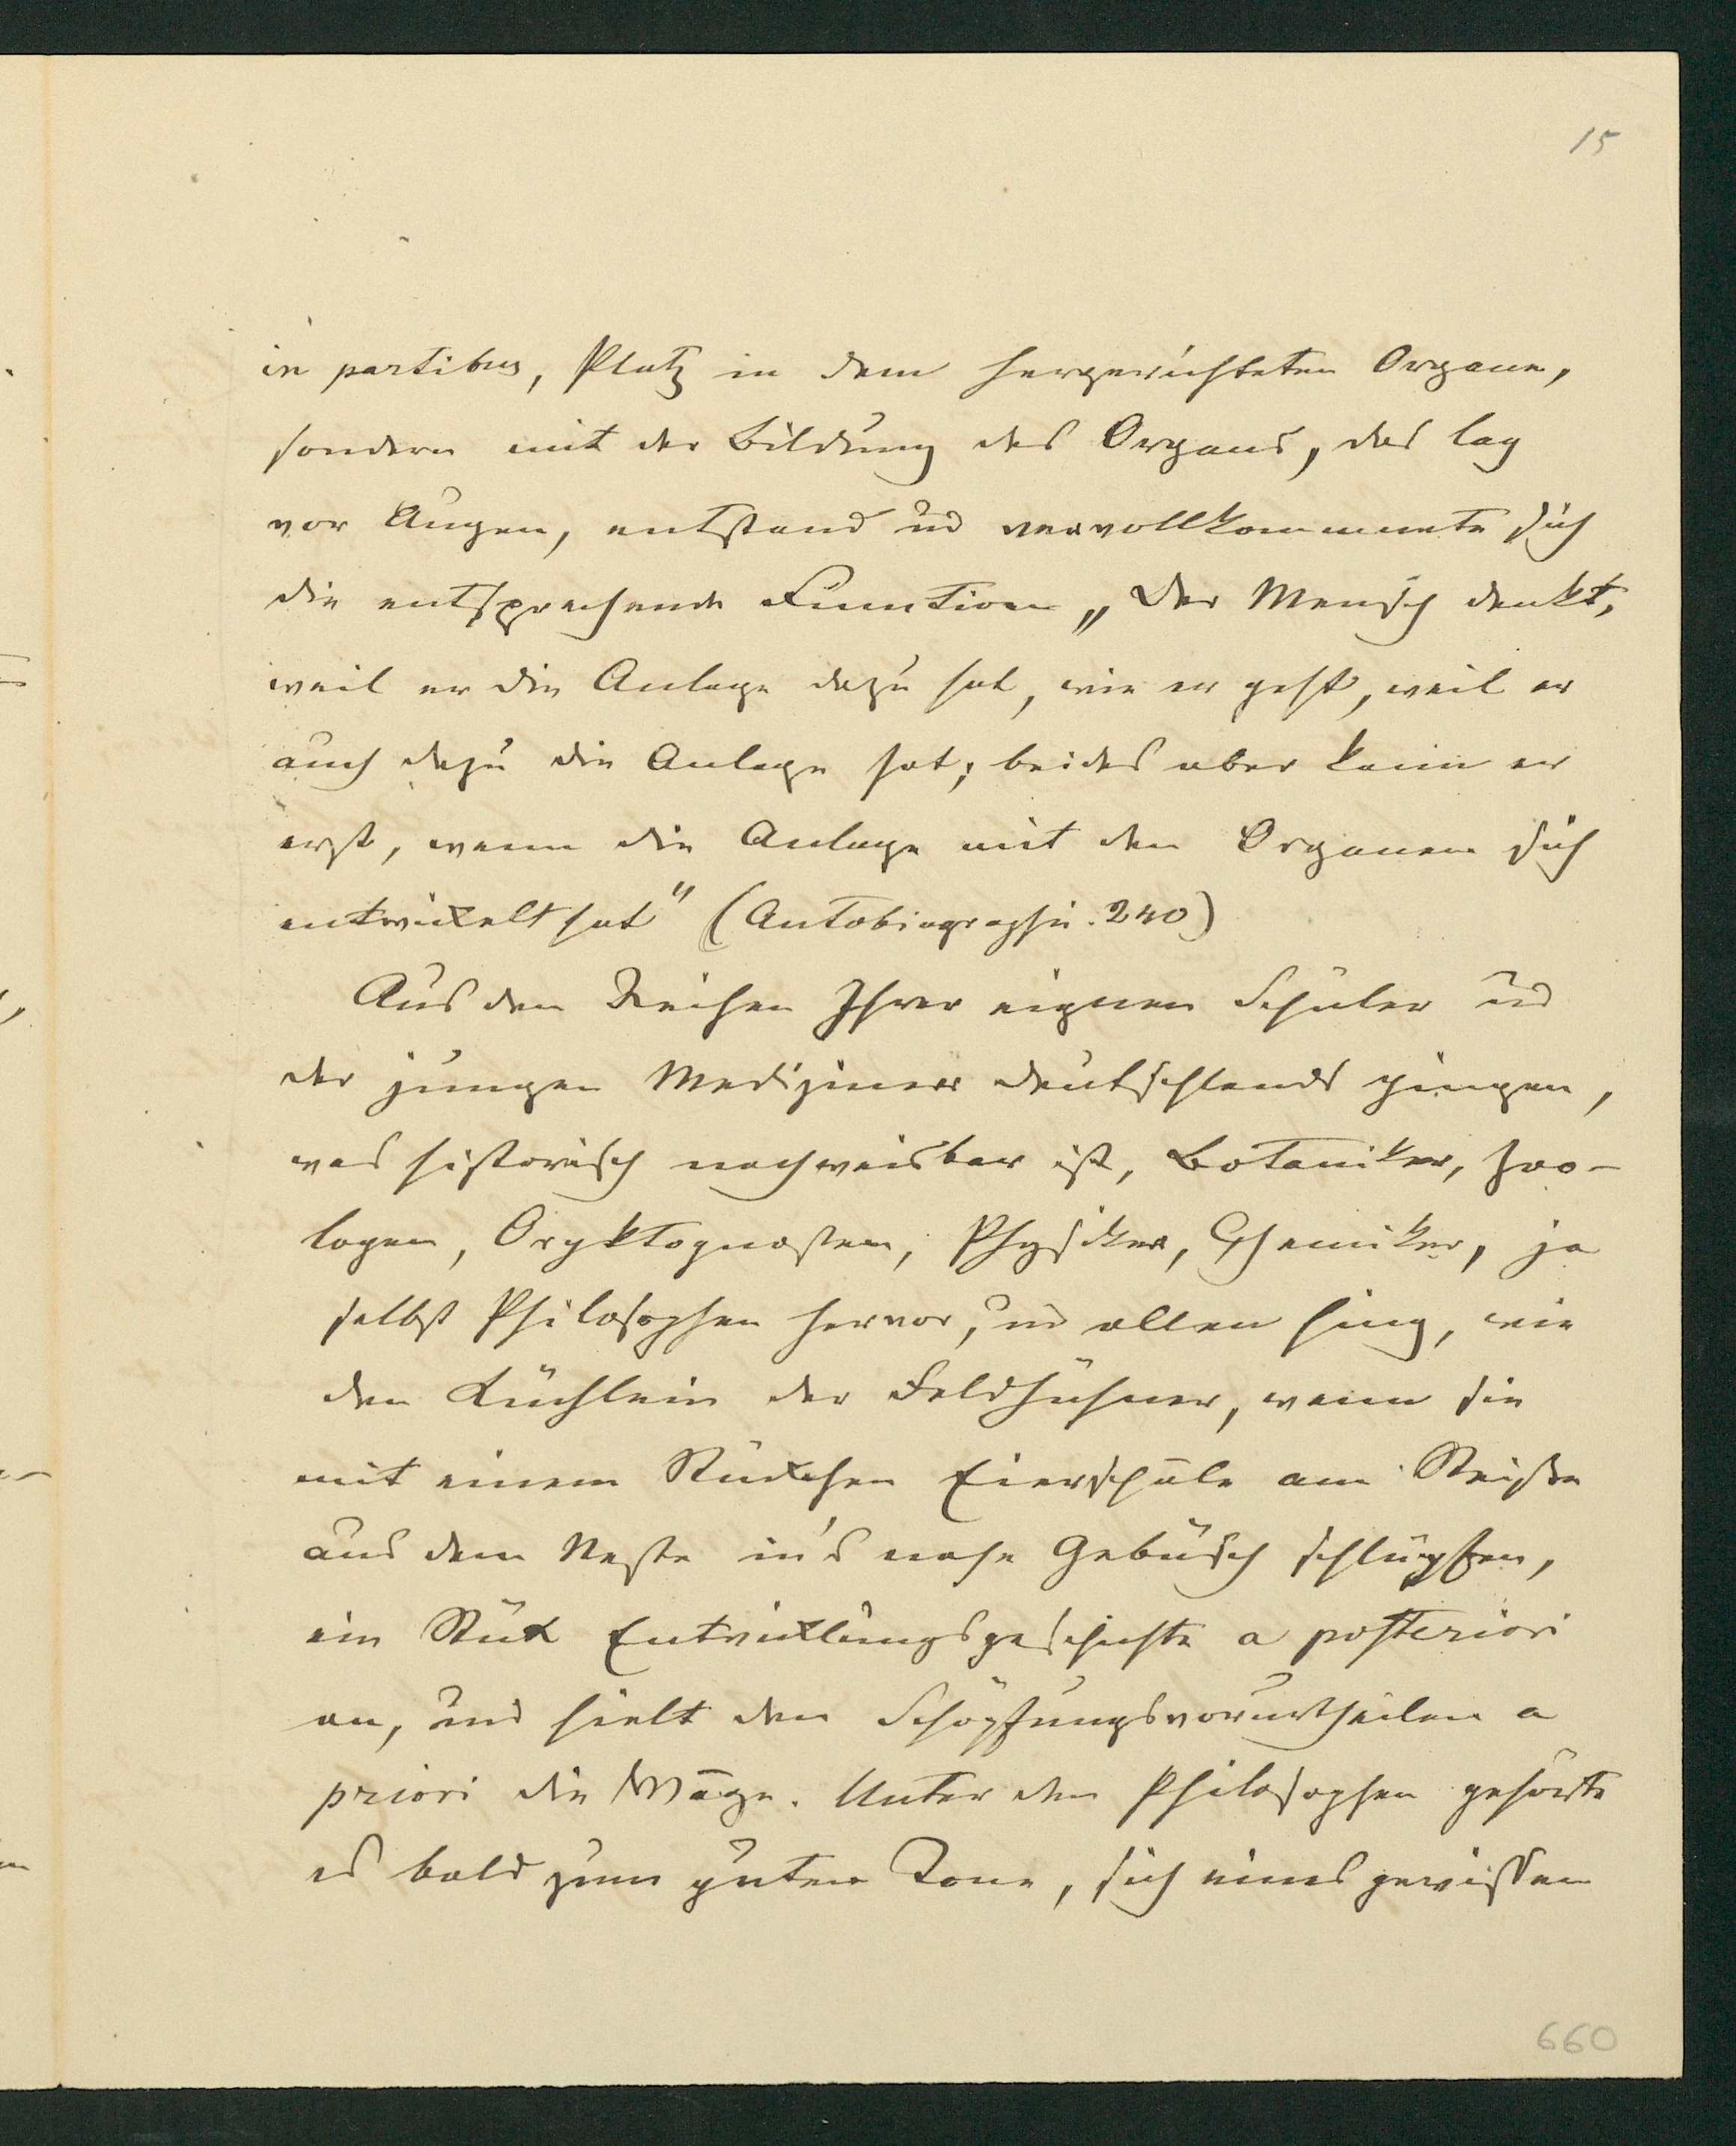 15
in partibus, Platz in dem hergerichteten Organe,
sondern mit der Bildung des Organs, das lag
vor Augen, entstand und vervollkommnete sich
die entsprechende Function „Der Mensch denkt,
weil er die Anlage dazu hat, wie er geht, weil er
auch dazu die Anlage hat; beides aber kann er
erst, wenn die Anlage mit den Organen sich
entwickelt hat" (Autobiographie. 240)
Aus den Reihen Ihrer eignen Schüler und
der jungen Mediziner Deutschlands gingen,
was historisch nachweisbar ist, Botaniker, Zoo-
logen, Oryktognosten, Physiker, Chemiker, ja
selbst Philosophen hervor, und allen hing, wie
den Küchlein der Feldhühner, wenn sie
mit einem Stückchen Eierschale am Steiße
aus dem Neste in's nahe Gebüsch schlüpfen,
ein Stück Entwicklungsgeschichte a posteriori
an, und hielt den Schöpfungsvorurtheilen a
priori die Wage. Unter den Philosophen gehörte
es bald zum guten Tone, sich eines gewissen
660